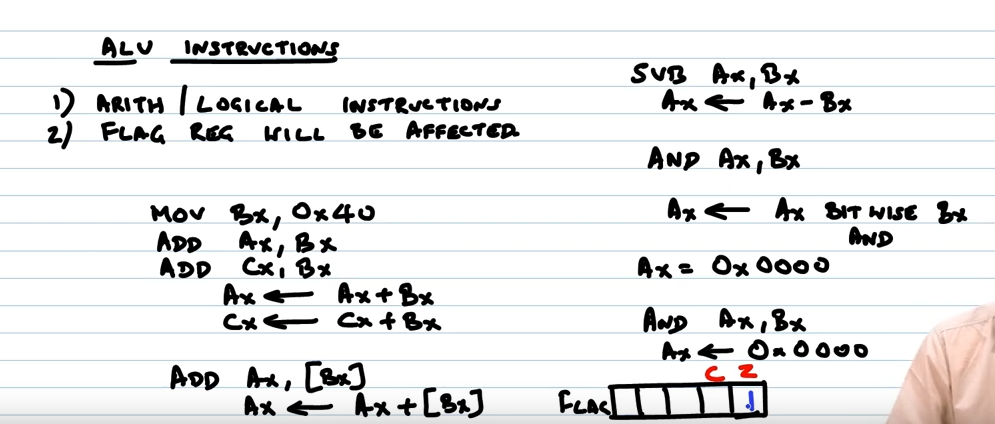 ALU INSTRUCTIONS
1) ARITH / LOGICAL INSTRUCTIONS
2) FLAG REG WILL BE AFFECTED
MOV Bx, 0x40
ADD Ax, Bx
ADD Cx, Bx
Ax ← Ax + Bx
Cx ← Cx + Bx
ADD Ax, [Bx]
Ax ← Ax + [Bx]
SUB Ax, Bx
Ax ← Ax - Bx
AND Ax, Bx
Ax ← Ax BITWISE Bx
AND
Ax = 0x0000
AND Ax, Bx
Ax ← 0x0000
C Z
FLAG 1